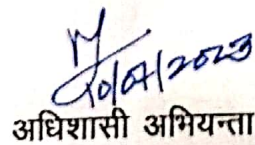 10/07/2023
अधिशासी अभियन्ता